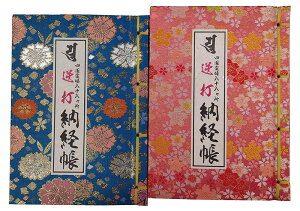 四国霊場八十八ヶ所
逆打
納経帳
四国霊場八十八ヶ所
逆打
納経帳